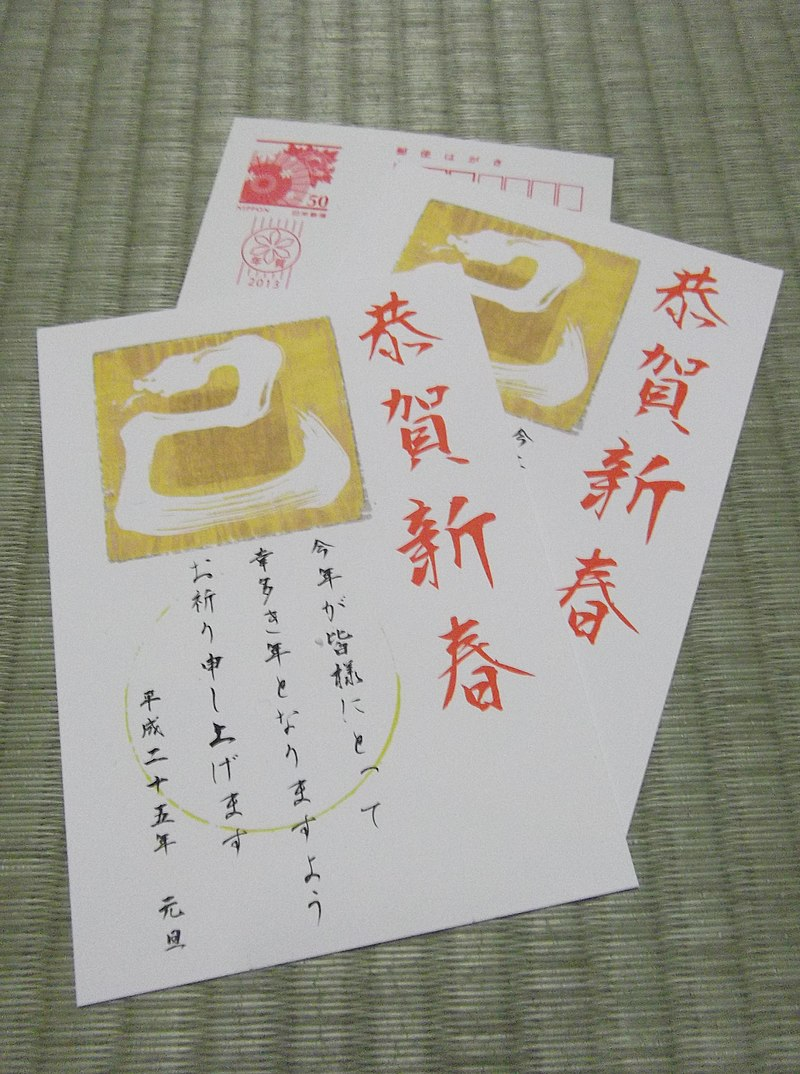 郵便はがき
50
NIPPON
日本郵便
年賀
2013
恭賀新春
今
恭賀新春
巳
今年が皆様にとって
幸多き年となりますよう
お祈り申し上げます
平成二十五年 元旦